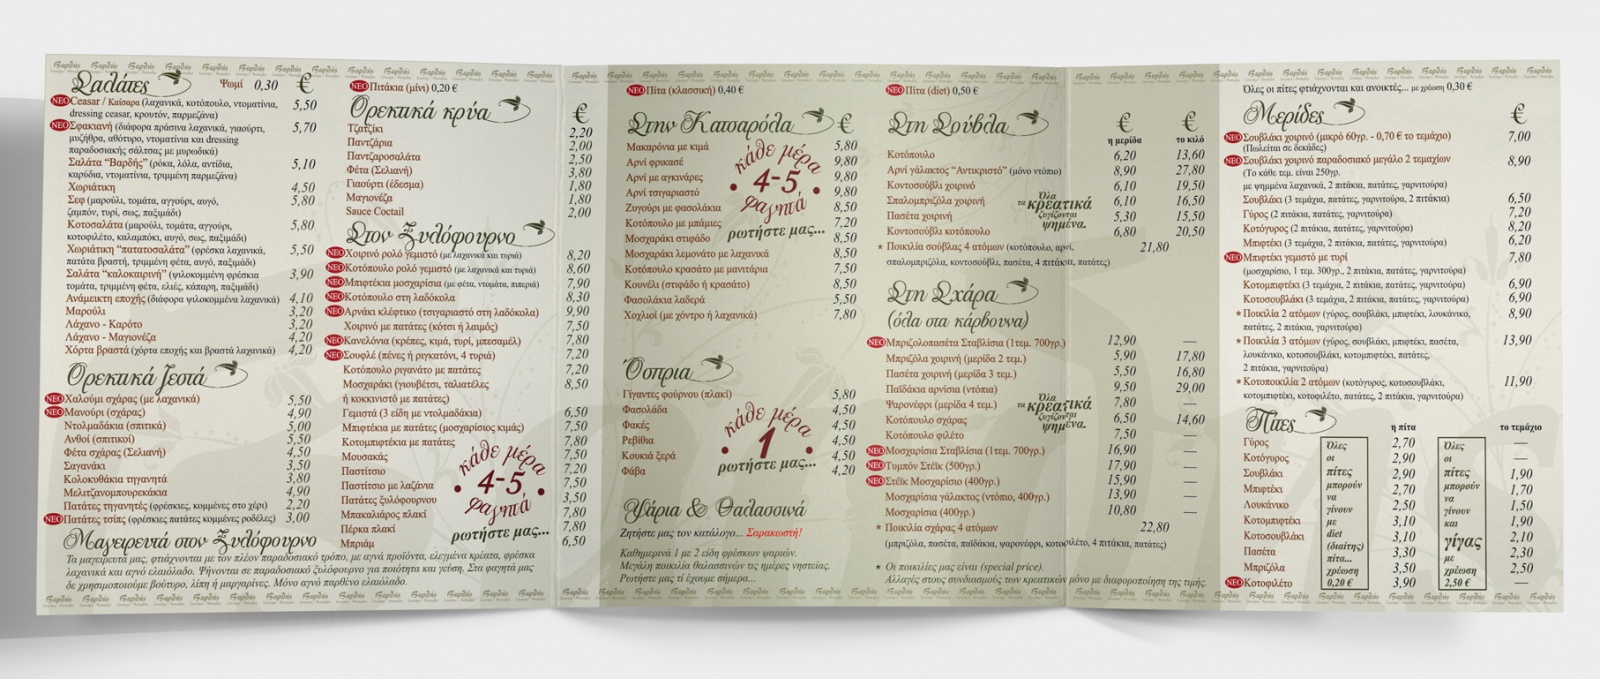 Σαλάτες
Ψωμί 0,30 €
ΝΕΟ Ceasar / Καίσαρα (λαχανικά, κοτόπουλο, ντοματίνια, 5,50
dressing ceasar, κρουτόν, παρμεζάνα)
ΝΕΟ Σφακιανή (διάφορα πράσινα λαχανικά, γιαούρτι, 5,70
μυζήθρα, αθότυρο, ντοματίνια και dressing
παραδοσιακής σάλτσας με μυρωδικά)
Σαλάτα "Βαρδής" (ρόκα, λόλα, αντίδια, 5,10
καρύδια, ντοματίνια, τριμμένη παρμεζάνα)
Χωριάτικη 4,50
Σεφ (μαρούλι, τομάτα, αγγούρι, αυγό, 5,80
ζαμπόν, τυρί, σως, παξιμάδι)
Κοτοσαλάτα (μαρούλι, τομάτα, αγγούρι, 5,80
κοτοφιλέτο, καλαμπόκι, αυγό, σως, παξιμάδι)
Χωριάτικη "πατατοσαλάτα" (φρέσκα λαχανικά, 5,50
πατάτα βραστή, τριμμένη φέτα, αυγό, παξιμάδι)
Σαλάτα "καλοκαιρινή" (ψιλοκομμένη φρέσκια 3,90
τομάτα, τριμμένη φέτα, ελιές, κάπαρη, παξιμάδι)
Ανάμεικτη εποχής (διάφορα ψιλοκομμένα λαχανικά) 4,10
Μαρούλι 3,20
Λάχανο - Καρότο 3,20
Λάχανο - Μαγιονέζα 4,20
Χόρτα βραστά (χόρτα εποχής και βραστά λαχανικά) 4,20
Ορεκτικά ζεστά
ΝΕΟ Χαλούμι σχάρας (με λαχανικά) 5,50
ΝΕΟ Μανούρι (σχάρας) 4,90
Ντολμαδάκια (σπιτικά) 5,00
Ανθοί (σπιτικοί) 5,50
Φέτα σχάρας (Σελιανή) 4,50
Σαγανάκι 3,50
Κολοκυθάκια τηγανητά 3,80
Μελιτζανομπουρεκάκια 4,90
Πατάτες τηγανητές (φρέσκιες, κομμένες στο χέρι) 2,20
ΝΕΟ Πατάτες τσίπς (φρέσκιες πατάτες κομμένες ροδέλες) 3,00
Μαγειρευτά στον Ξυλόφουρνο
Τα μαγειρευτά μας, φτιάχνονται με τον πλέον παραδοσιακό τρόπο, με αγνά προϊόντα, ελεγμένα κρέατα, φρέσκα
λαχανικά και αγνό ελαιόλαδο. Ψήνονται σε παραδοσιακό ξυλόφουρνο για ποιότητα και γεύση. Στα φαγητά μας
δε χρησιμοποιούμε βούτυρο, λίπη ή μαργαρίνες. Μόνο αγνό παρθένο ελαιόλαδο.
ΝΕΟ Πιτάκια (μίνι) 0,20 €
Ορεκτικά κρύα €
Τζατζίκι 2,20
Παντζάρια 2,00
Παντζαροσαλάτα 2,50
Φέτα (Σελιανή) 3,80
Γιαούρτι (έδεσμα) 1,80
Μαγιονέζα 1,80
Sauce Coctail 2,00
Στον Ξυλόφουρνο
ΝΕΟ Χοιρινό ρολό γεμιστό (με λαχανικά και τυριά) 8,20
ΝΕΟ Κοτόπουλο ρολό γεμιστό (με λαχανικά και τυριά) 8,60
ΝΕΟ Μπιφτέκια μοσχαρίσια (με φέτα, ντομάτα, πιπεριά) 7,90
ΝΕΟ Κοτόπουλο στη λαδόκολα 8,30
ΝΕΟ Αρνάκι κλέφτικο (τσιγαριαστό στη λαδόκολα) 9,90
Χοιρινό με πατάτες (κότσι ή λαιμός) 7,50
ΝΕΟ Κανελόνια (κρέπες, κιμά, τυρί, μπεσαμέλ) 7,80
ΝΕΟ Σουφλέ (πένες ή ριγκατόνι, 4 τυριά) 7,20
Κοτόπουλο ριγανάτο με πατάτες 7,20
Μοσχαράκι (γιουβέτσι, ταλιατέλες 8,50
ή κοκκινιστό με πατάτες)
Γεμιστά (3 είδη με ντολμαδάκια) 6,50
Μπιφτέκια με πατάτες (μοσχαρίσιος κιμάς) 7,50
Κοτομπιφτέκια με πατάτες 7,80
Μουσακάς 7,50
Παστίτσιο 7,20
Παστίτσιο με λαζάνια 7,50
Πατάτες ξυλόφουρνου 3,50
Μπακαλιάρος πλακί 7,80
Πέρκα πλακί 7,80
Μπριάμ 6,50
κάθε μέρα
4-5
φαγητά
ρωτήστε μας...
ΝΕΟ Πίτα (κλασσική) 0,40 €
Στην Κατσαρόλα €
Μακαρόνια με κιμά 5,80
Αρνί φρικασέ 9,80
Αρνί με αγκινάρες 9,80
Αρνί τσιγαριαστό 9,80
Ζυγούρι με φασολάκια 8,50
Κοτόπουλο με μπάμιες 7,20
Μοσχαράκι στιφάδο 8,50
Μοσχαράκι λεμονάτο με λαχανικά 8,50
Κοτόπουλο κρασάτο με μανιτάρια 7,50
Κουνέλι (στιφάδο ή κρασάτο) 8,50
Φασολάκια λαδερά 5,50
Χοχλιοί (με χόντρο ή λαχανικά) 7,80
κάθε μέρα
4-5
φαγητά
ρωτήστε μας...
Όσπρια
Γίγαντες φούρνου (πλακί) 5,80
Φασολάδα 4,50
Φακές 4,50
Ρεβίθια 4,50
Κουκιά ξερά 4,50
Φάβα 4,20
κάθε μέρα
1
ρωτήστε μας...
Ψάρια & Θαλασσινά
Ζητήστε μας τον κατάλογο... Σαρακωστή!
Καθημερινά 1 με 2 είδη φρέσκων ψαριών.
Μεγάλη ποικιλία θαλασσινών τις ημέρες νηστείας.
Ρωτήστε μας τί έχουμε σήμερα...
ΝΕΟ Πίτα (diet) 0,50 €
Στη Σούβλα € €
η μερίδα το κιλό
Κοτόπουλο 6,20 13,60
Αρνί γάλακτος "Αντικριστό" (μόνο ντόπιο) 8,90 27,80
Κοντοσούβλι χοιρινό 6,10 19,50
Σπαλομπριζόλα χοιρινή 6,10 16,50
Πασέτα χοιρινή 5,30 15,50
Κοντοσούβλι κοτόπουλο 6,80 20,50
Όλα
τα κρεατικά
ζυγίζονται
ψημένα.
* Ποικιλία σούβλας 4 ατόμων (κοτόπουλο, αρνί, 21,80
σπαλομπριζόλα, κοντοσούβλι, πασέτα, 4 πιτάκια, πατάτες)
Στη Σχάρα
(όλα στα κάρβουνα)
ΝΕΟ Μπριζολοπασέτα Σταβλίσια (1τεμ. 700γρ.) 12,90 —
Μπριζόλα χοιρινή (μερίδα 2 τεμ.) 5,90 17,80
Πασέτα χοιρινή (μερίδα 3 τεμ.) 5,50 16,80
Παϊδάκια αρνίσια (ντόπια) 9,50 29,00
Ψαρονέφρι (μερίδα 4 τεμ.) 7,80 —
Κοτόπουλο σχάρας 6,50 14,60
Κοτόπουλο φιλέτο 7,50 —
ΝΕΟ Μοσχαρίσια Σταβλίσια (1τεμ. 700γρ.) 16,90 —
ΝΕΟ Τυμπόν Στέϊκ (500γρ.) 17,90 —
ΝΕΟ Στέϊκ Μοσχαρίσιο (400γρ.) 15,90 —
Μοσχαρίσια γάλακτος (ντόπιο, 400γρ.) 13,90 —
Μοσχαρίσια (400γρ.) 10,80 —
Όλα
τα κρεατικά
ζυγίζονται
ψημένα.
* Ποικιλία σχάρας 4 ατόμων 22,80
(μπριζόλα, πασέτα, παϊδάκια, ψαρονέφρι, κοτοφιλέτο, 4 πιτάκια, πατάτες)
* Οι ποικιλίες μας είναι (special price).
Αλλαγές στους συνδιασμούς των κρεατικών μόνο με διαφοροποίηση της τιμής.
Όλες οι πίτες φτιάχνονται και ανοικτές... με χρέωση 0,30 €
Μερίδες €
ΝΕΟ Σουβλάκι χοιρινό (μικρό 60γρ. - 0,70 € το τεμάχιο) 7,00
(Πωλείται σε δεκάδες)
ΝΕΟ Σουβλάκι χοιρινό παραδοσιακό μεγάλο 2 τεμαχίων 8,90
(Το κάθε τεμ. είναι 250γρ.
με ψημμένα λαχανικά, 2 πιτάκια, πατάτες, γαρνιτούρα)
Σουβλάκι (3 τεμάχια, πατάτες, γαρνιτούρα, 2 πιτάκια) 6,50
Γύρος (2 πιτάκια, πατάτες, γαρνιτούρα) 7,20
Κοτόγυρος (2 πιτάκια, πατάτες, γαρνιτούρα) 8,20
Μπιφτέκι (3 τεμάχια, 2 πιτάκια, πατάτες, γαρνιτούρα) 6,20
ΝΕΟ Μπιφτέκι γεμιστό με τυρί 7,80
(μοσχαρίσιο, 1 τεμ. 300γρ., 2 πιτάκια, πατάτες, γαρνιτούρα)
Κοτομπιφτέκι (3 τεμάχια, 2 πιτάκια, πατάτες, γαρνιτούρα) 6,90
Κοτοσουβλάκι (3 τεμάχια, 2 πιτάκια, πατάτες, γαρνιτούρα) 6,90
* Ποικιλία 2 ατόμων (γύρος, σουβλάκι, μπιφτέκι, λουκάνικο, 8,90
πατάτες, 2 πιτάκια, γαρνιτούρα)
* Ποικιλία 3 ατόμων (γύρος, σουβλάκι, μπιφτέκι, πασέτα, 13,90
λουκάνικο, κοτοσουβλάκι, κοτομπιφτέκι, πατάτες,
2 πιτάκια, πατάτες, γαρνιτούρα)
* Κοτοποικιλία 2 ατόμων (κοτόγυρος, κοτοσουβλάκι, 11,90
κοτομπιφτέκι, κοτοφιλέτο, πατάτες, 2 πιτάκια, γαρνιτούρα)
Πίτες
η πίτα το τεμάχιο
Γύρος 2,70 —
Κοτόγυρος 2,90 —
Σουβλάκι 2,90 1,90
Μπιφτέκι 2,70 1,70
Λουκάνικο 2,50 1,50
Κοτομπιφτέκι 3,10 1,90
Κοτοσουβλάκι 3,10 2,10
Πασέτα 3,30 2,30
Μπριζόλα 3,50 2,50
ΝΕΟ Κοτοφιλέτο 3,90 —
Όλες
οι
πίτες
μπορούν
να
γίνουν
με
diet
(διαίτης)
πίτα...
χρέωση
0,20 €
Όλες
οι
πίτες
μπορούν
να
γίνουν
και
γίγας
με
χρέωση
2,50 €